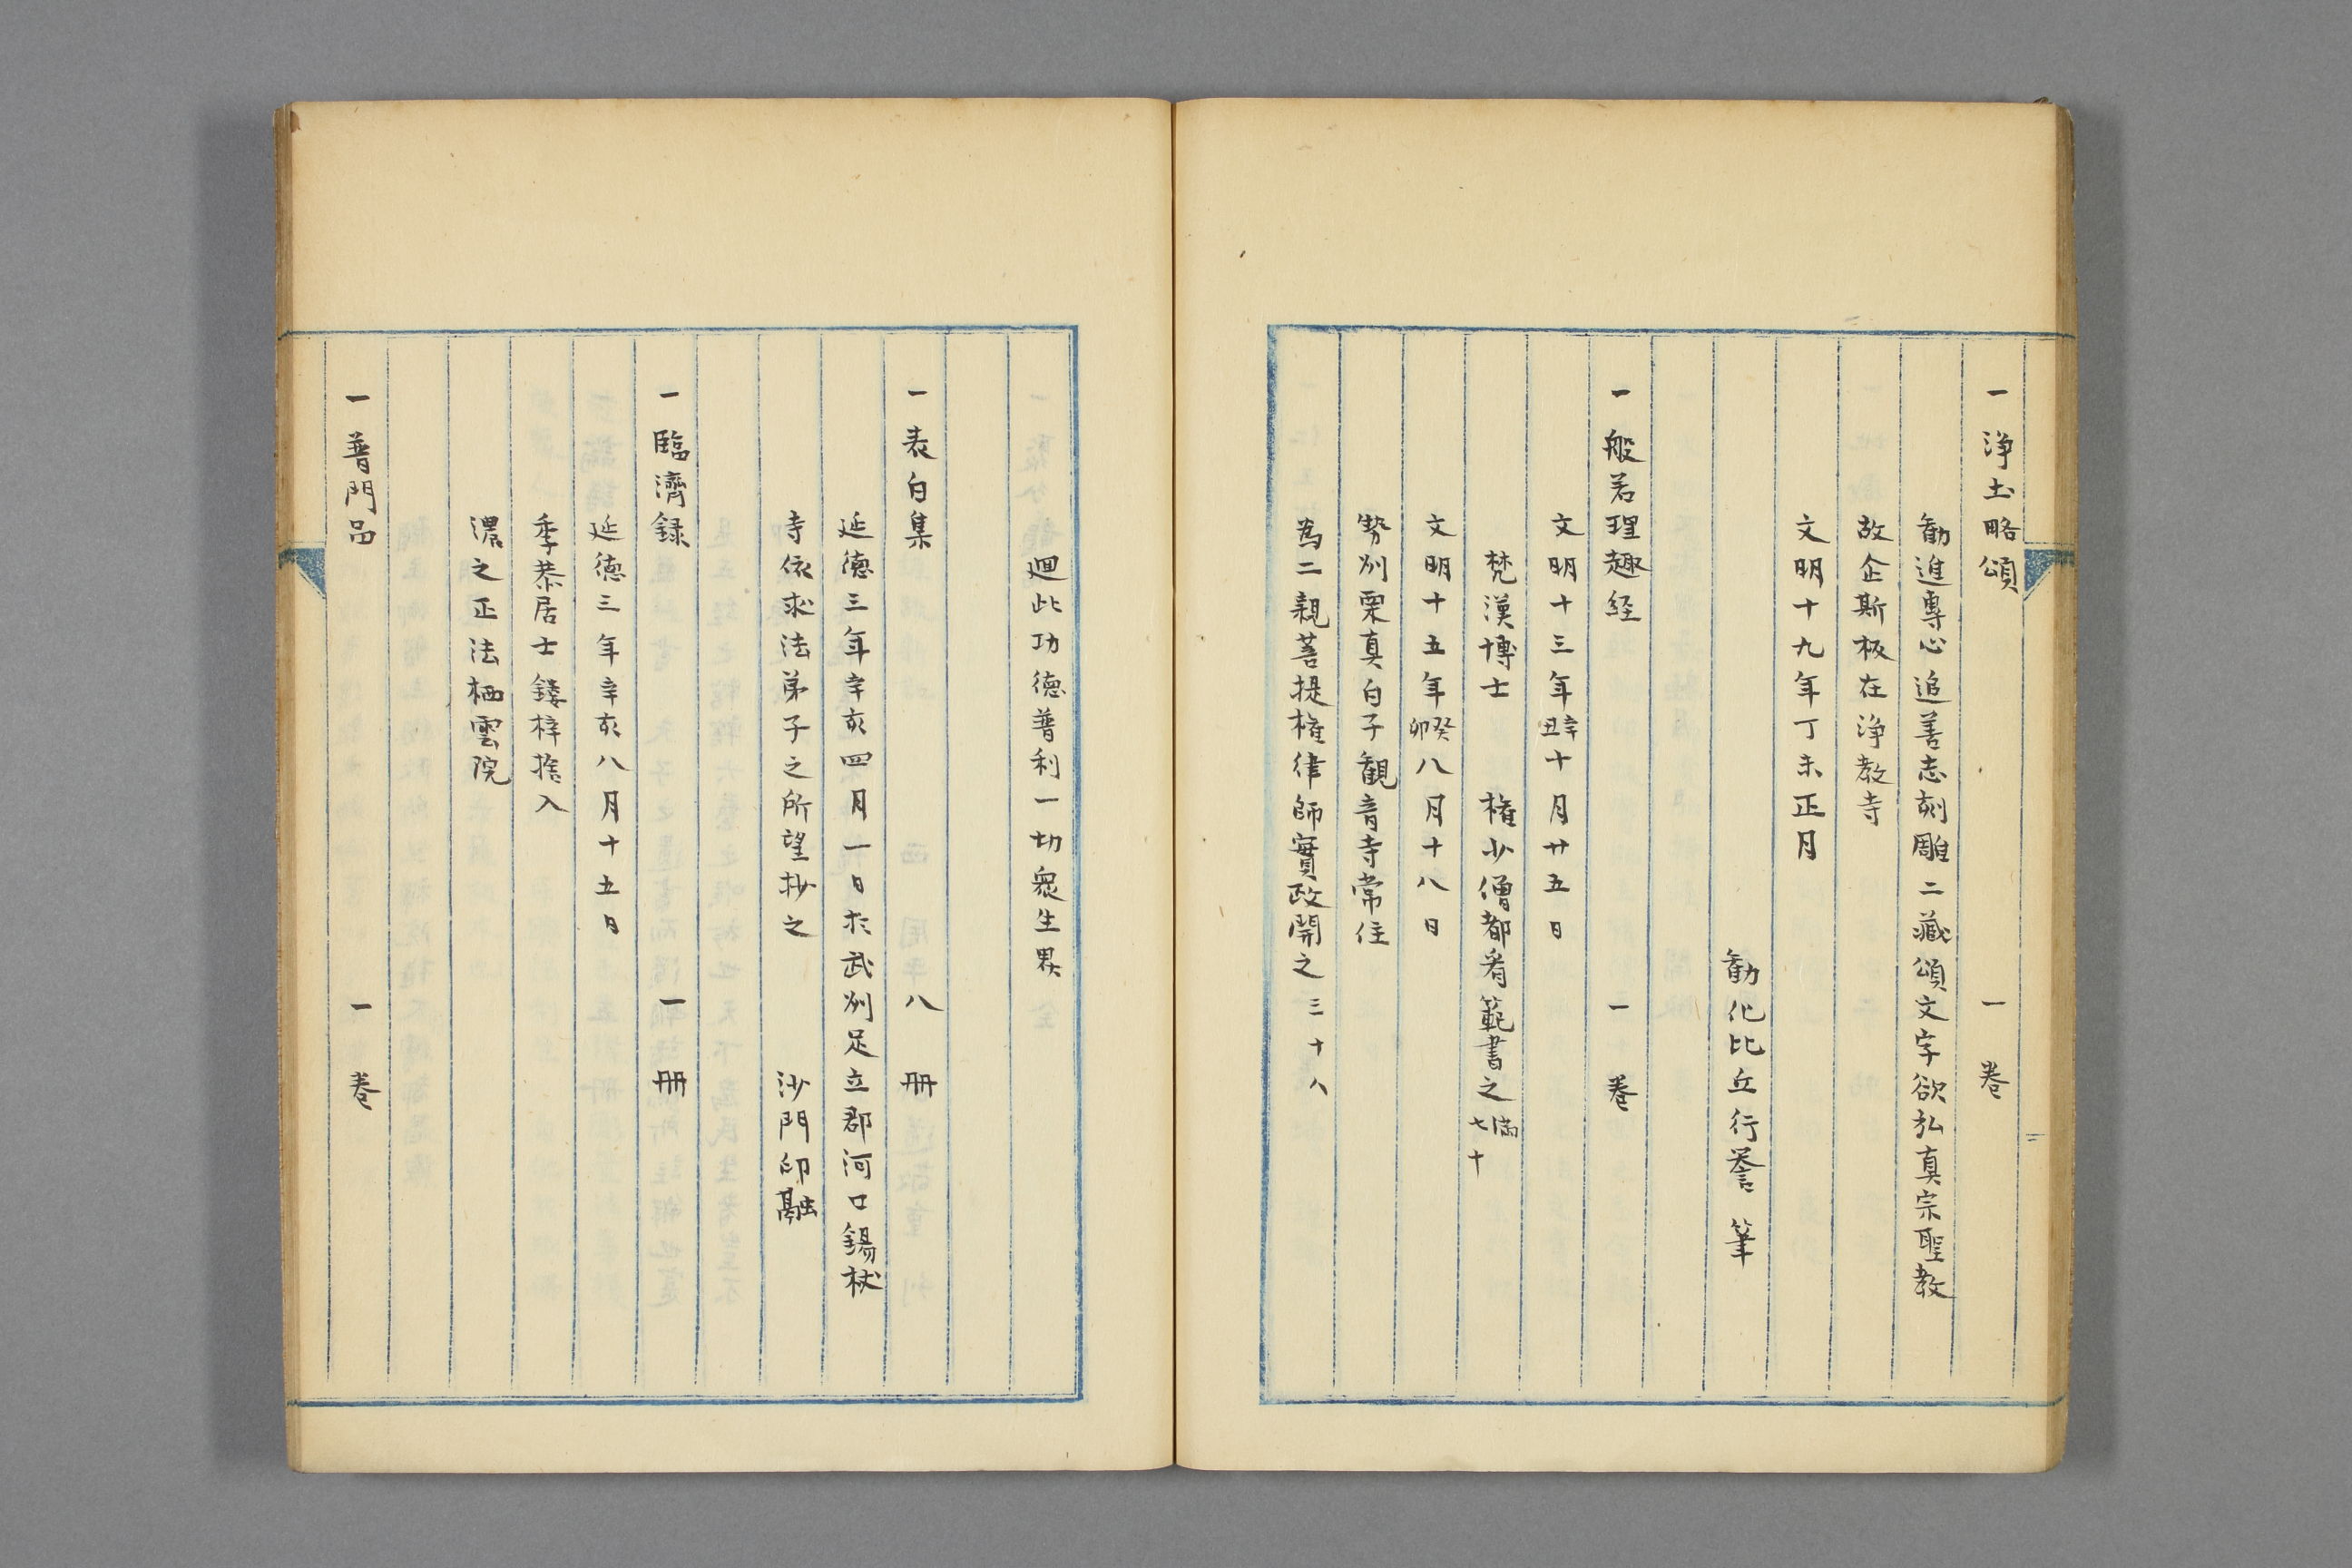 一 浄土略頌 一巻
勧進専心追善志刻雕二蔵頌文字欲弘真宗聖教
故企斯板在浄教寺
文明十九年丁未正月
勧化比丘行誉 筆
一 般若理趣経 一巻
文明十三年辛丑十月廿五日
梵漢博士 権少僧都宥範書之満七十
文明十五年癸卯八月十八日
勢州栗真白子観音寺常住
為二親菩提権律師實政開之三十八
廻此功徳普利一切衆生界
一 表白集 八冊
延徳三年辛亥四月一日於武州足立郡河口錫杖
寺依求法弟子之所望抄之 沙門印融
一 臨濟録 一冊
延徳三年辛亥八月十五日
季恭居士鏤梓捨入
濃之正法栖雲院
一 普門品 一巻